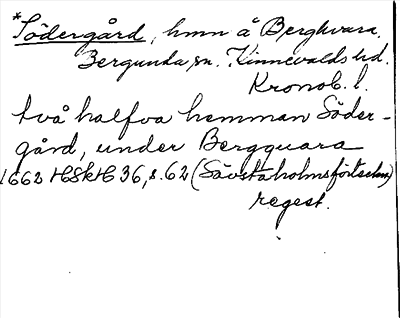 *Södergård, hmn å Berghvara.
Bergunda sn. Kinnevalds hd.
Kronob. l.
två halfva hemman Söder-
gård, under Bergquara
1662 HSkH 36, s. 62 (Sävstaholmsförteckn)
regest.